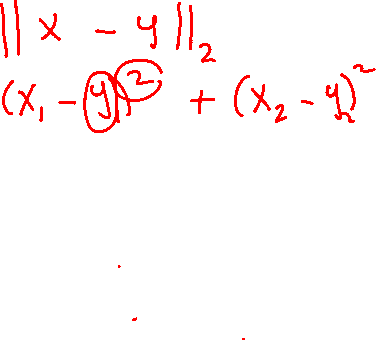 ||x - y||₂
(x₁ - y₁)² + (x₂ - y₂)²